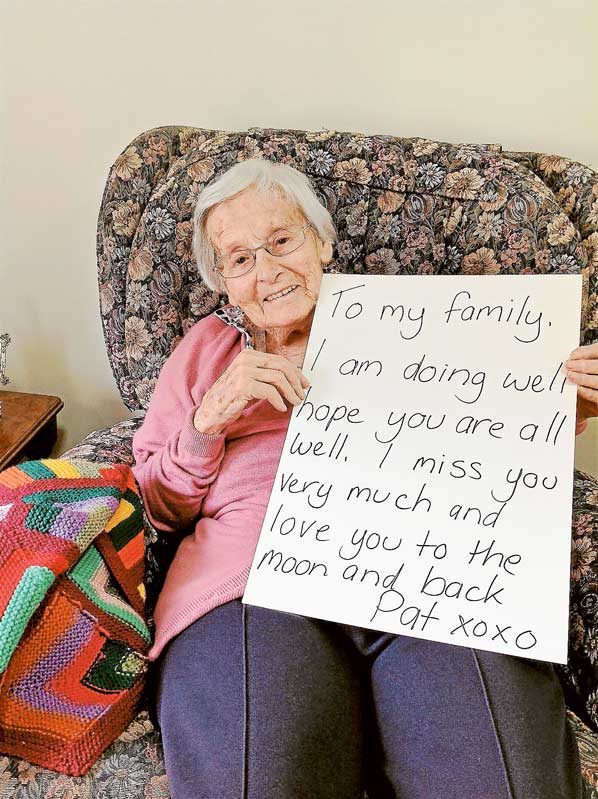 To my family.
I am doing well
hope you are all
well. I miss you
very much and
love you to the
moon and back
Pat xoxo